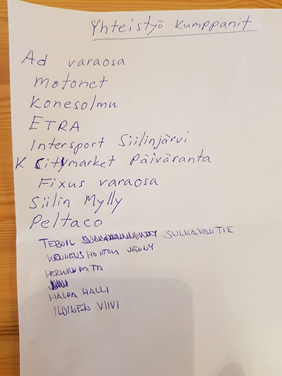 Yhteistyö kumppanit
Ad varaosa
motonet
konesolmu
ETRA
Intersport Siilinjärvi
K Citymarket Päiväranta
Fixus varaosa
Siilin Mylly
Peltaco
TEBOIL SULKAVANTIE
JENNY
HERKKUPATA
HALPA HALLI
IDINEN VIIVI